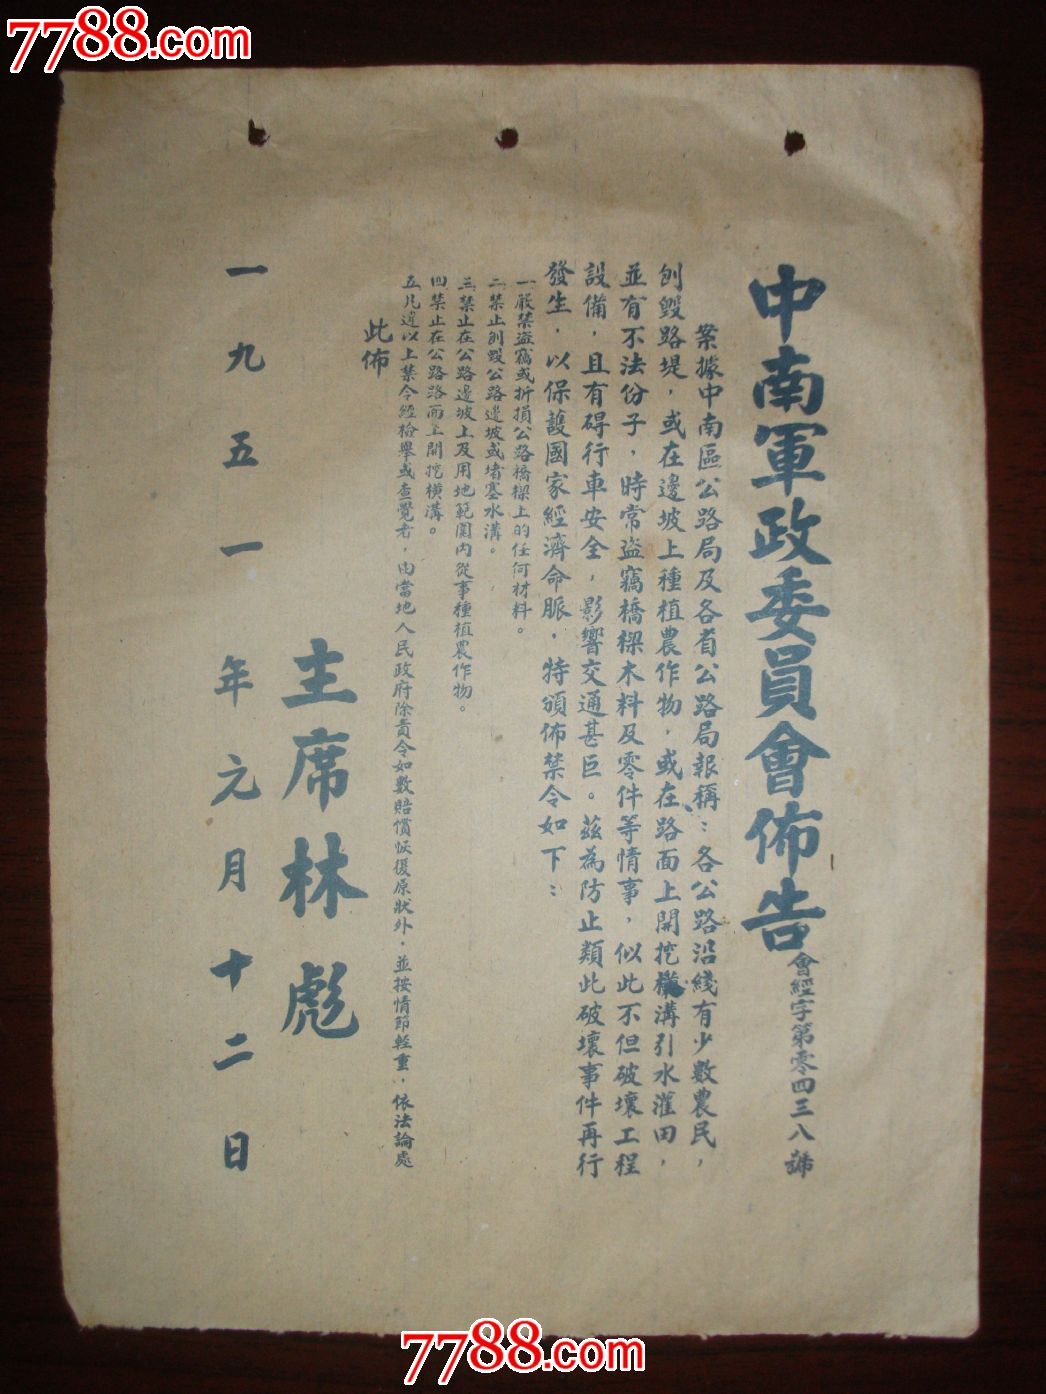 7788.com
7788.com
中南軍政委員會佈告
會經字第零四三八號
案據中南區公路局及各省公路局報稱：各公路沿綫有少數農民，
刨毀路堤，或在邊坡上種植農作物，或在路面上開挖橫溝引水灌田，
並有不法份子，時常盜竊橋樑木料及零件等情事，似此不但破壞工程
設備，且有碍行車安全，影響交通甚巨。茲為防止類此破壞事件再行
發生，以保護國家經濟命脈，特頒佈禁令如下：
一嚴禁盜竊或折損公路橋樑上的任何材料。
二禁止刨毀公路邊坡或堵塞水溝。
三禁止在公路邊坡上及用地範圍內從事種植農作物。
四禁止在公路路面上開挖橫溝。
五凡違以上禁令經檢舉或查覺者，由當地人民政府除責令如數賠償恢復原狀外，並按情節輕重，依法論處
此佈
主席林彪
一九五一年元月十二日
7788.com